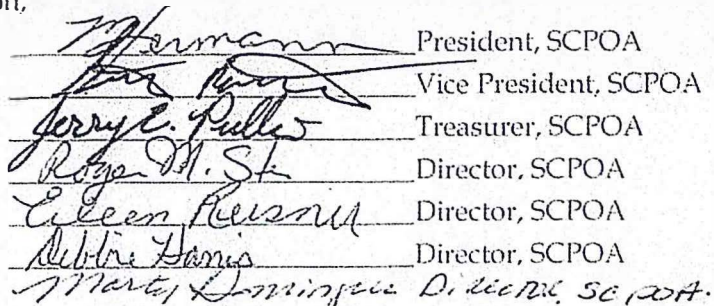 on,
MHermann President, SCPOA
Vice President, SCPOA
Jerry E. Treasurer, SCPOA
Roger M. Director, SCPOA
Eileen Director, SCPOA
Debbie Harris Director, SCPOA
Marty Director, SCPOA.